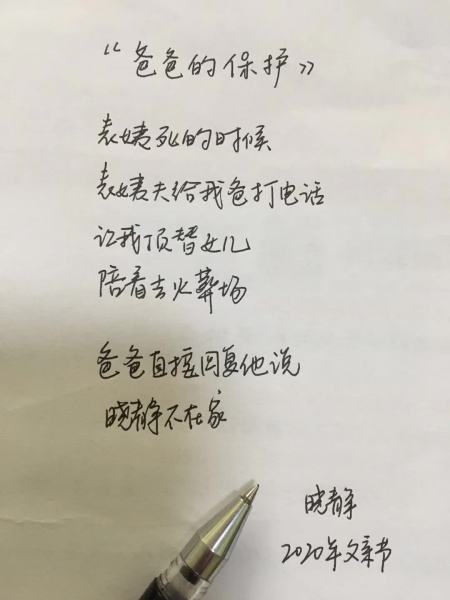 “爸爸的保护》
表姨死的时候
表姨夫给我爸打电话
让我顶替女儿
陪着去火葬场
爸爸直接回复他说
晓静不在家
晓静
2020年父亲节